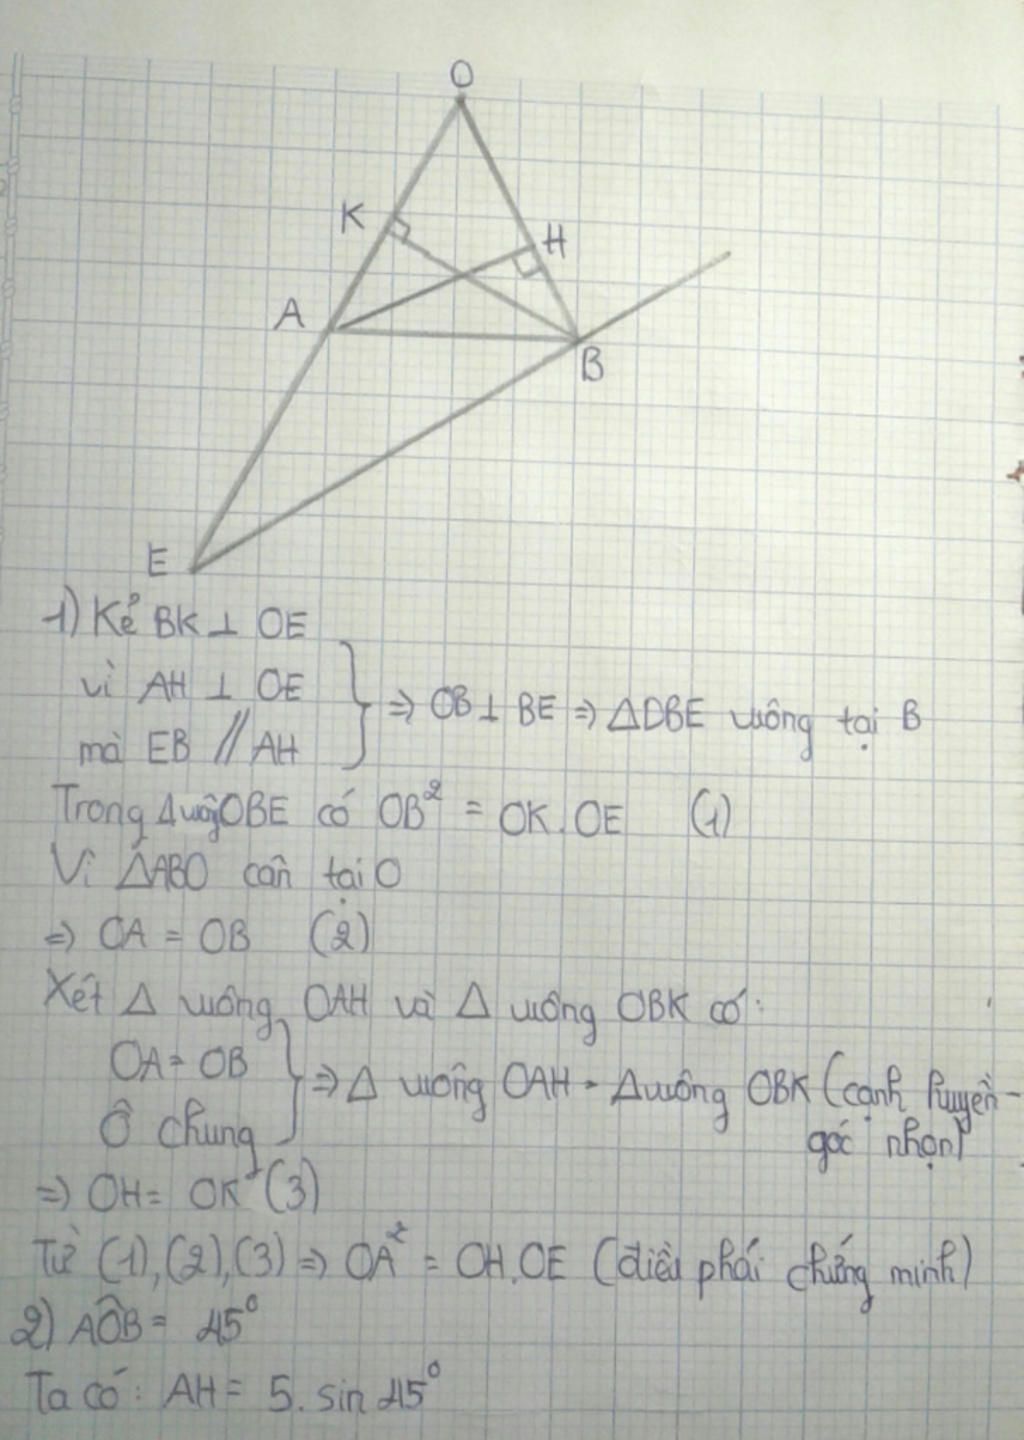 O
K
H
A
B
E
1) Kẻ BK ⊥ OE
vì AH ⊥ OE
mà EB // AH
} ⇒ OB ⊥ BE ⇒ ΔOBE vuông tại B
Trong Δ vuôg OBE có OB² = OK.OE (1)
Vì ΔABO cân tại O
⇒ OA = OB (2)
Xét Δ vuông OAH và Δ vuông OBK có:
OA = OB
Ô chung
} ⇒ Δ vuông OAH = Δ vuông OBK (cạnh huyền -
góc nhọn)
⇒ OH = OK (3)
Từ (1), (2), (3) ⇒ OA² = OH.OE (điều phải chứng minh)
2) AÔB = 45°
Ta có: AH = 5. sin 45°